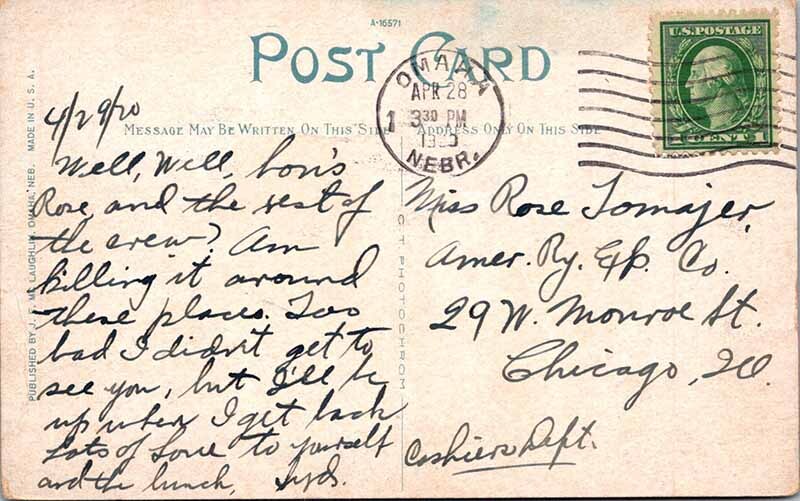 A-16571
POST CARD
MESSAGE MAY BE WRITTEN ON THIS SIDE
ADDRESS ONLY ON THIS SIDE
MADE IN U. S. A.
PUBLISHED BY J. F. MC LAUGHLIN, OMAHA, NEB.
C T PHOTOCHROM
OMAHA
APR 28
1 3 30 PM
NEBR.
U.S. POSTAGE
1 CENT 1
4/29/20
Well, Well, how's
Rose, and the rest of
the crew? Am
killing it around
these places. Too
bad I didn't get to
see you, but I'll be
up when I get back
Lots of Love to yourself
and the bunch,
Miss Rose Tomajer,
Amer. Ry. Exp. Co.
29 W. Monroe St.
Chicago, Ill.
Cashiers Dept.